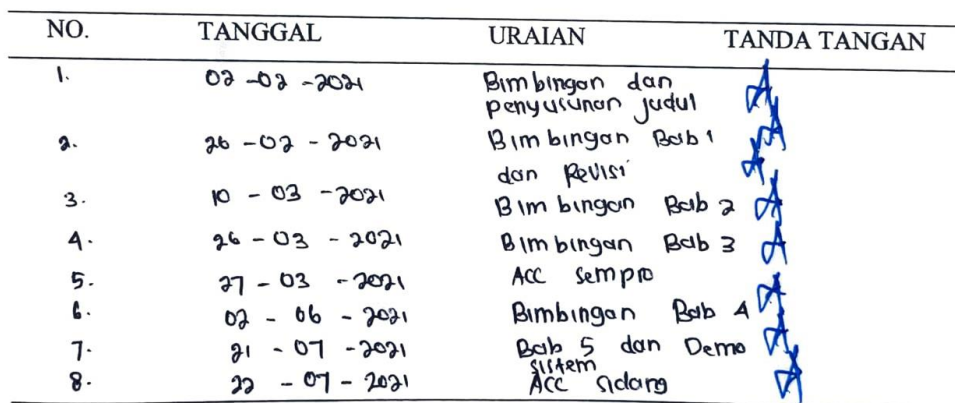 NO. TANGGAL URAIAN TANDA TANGAN
1. 02-02-2021 Bimbingan dan
penyusunan judul
2. 26-02-2021 Bimbingan Bab 1
dan Revisi
3. 10-03-2021 Bimbingan Bab 2
4. 26-03-2021 Bimbingan Bab 3
5. 27-03-2021 ACC sempro
6. 02-06-2021 Bimbingan Bab 4
7. 21-07-2021 Bab 5 dan Demo
sistem
8. 22-07-2021 ACC sidang